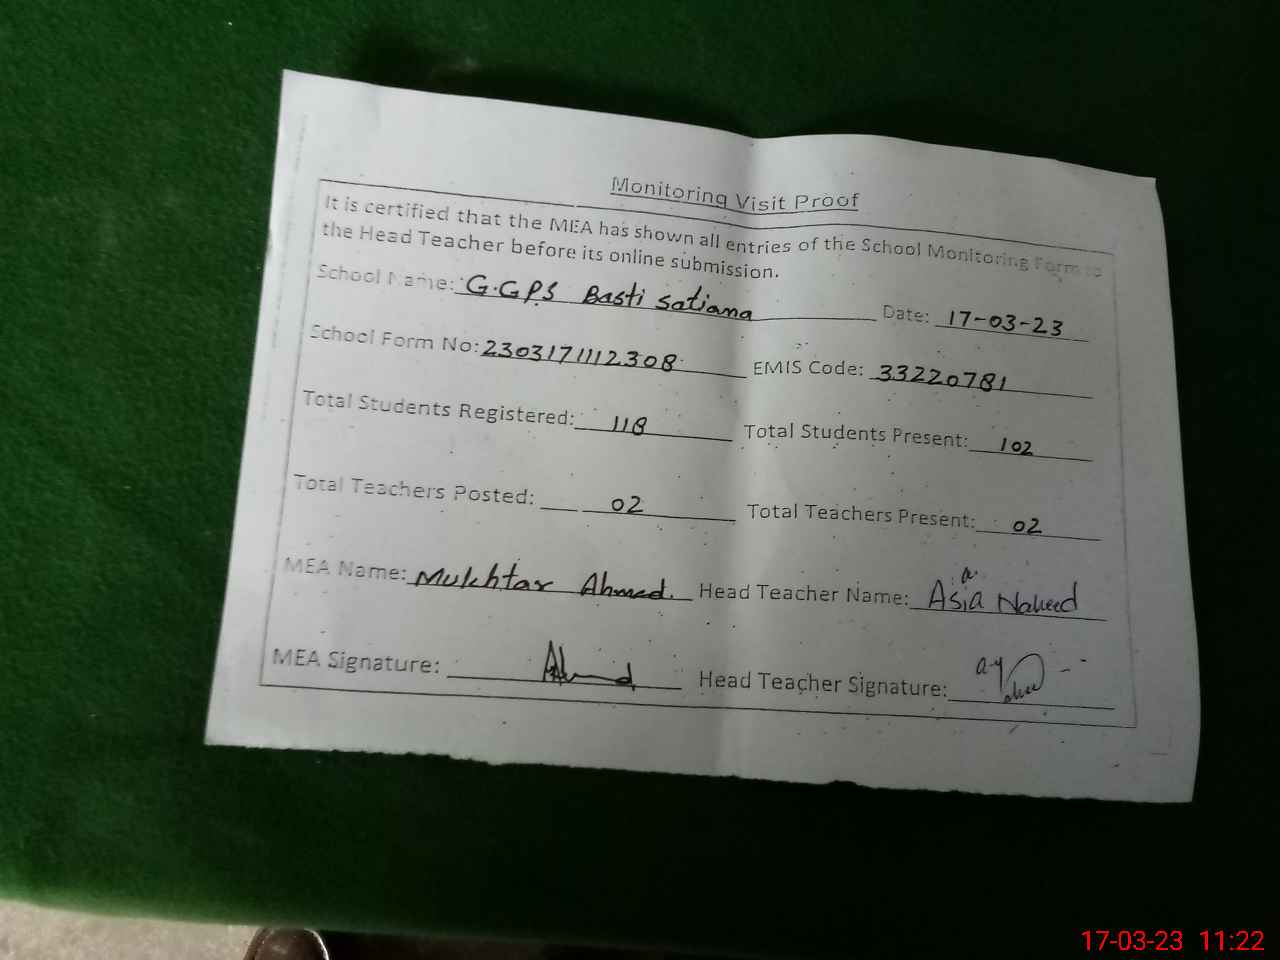 Monitoring Visit Proof
It is certified that the MEA has shown all entries of the School Monitoring Form to
the Head Teacher before its online submission.
School Name: G.GPS Basti Satiana Date: 17-03-23
School Form No: 2303171112308 EMIS Code: 33220781
Total Students Registered: 118 Total Students Present: 102
Total Teachers Posted: 02 Total Teachers Present: 02
MEA Name: Mukhtar Ahmed. Head Teacher Name: Asia Naheed
MEA Signature: Head Teacher Signature:
17-03-23 11:22